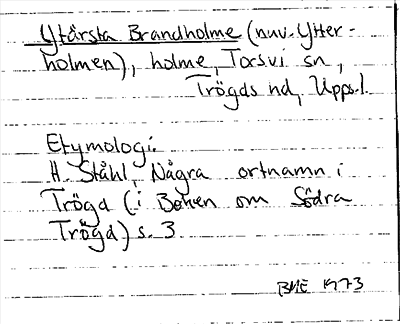 Ytärsta Brandholme (nuv. Ytter-
holmen), holme, Torsvi sn,
Trögds hd, Uppl.
Etymologi:
H. Ståhl, Några ortnamn i
Trögd (i Boken om Södra
Trögd) s. 3
BME 1973